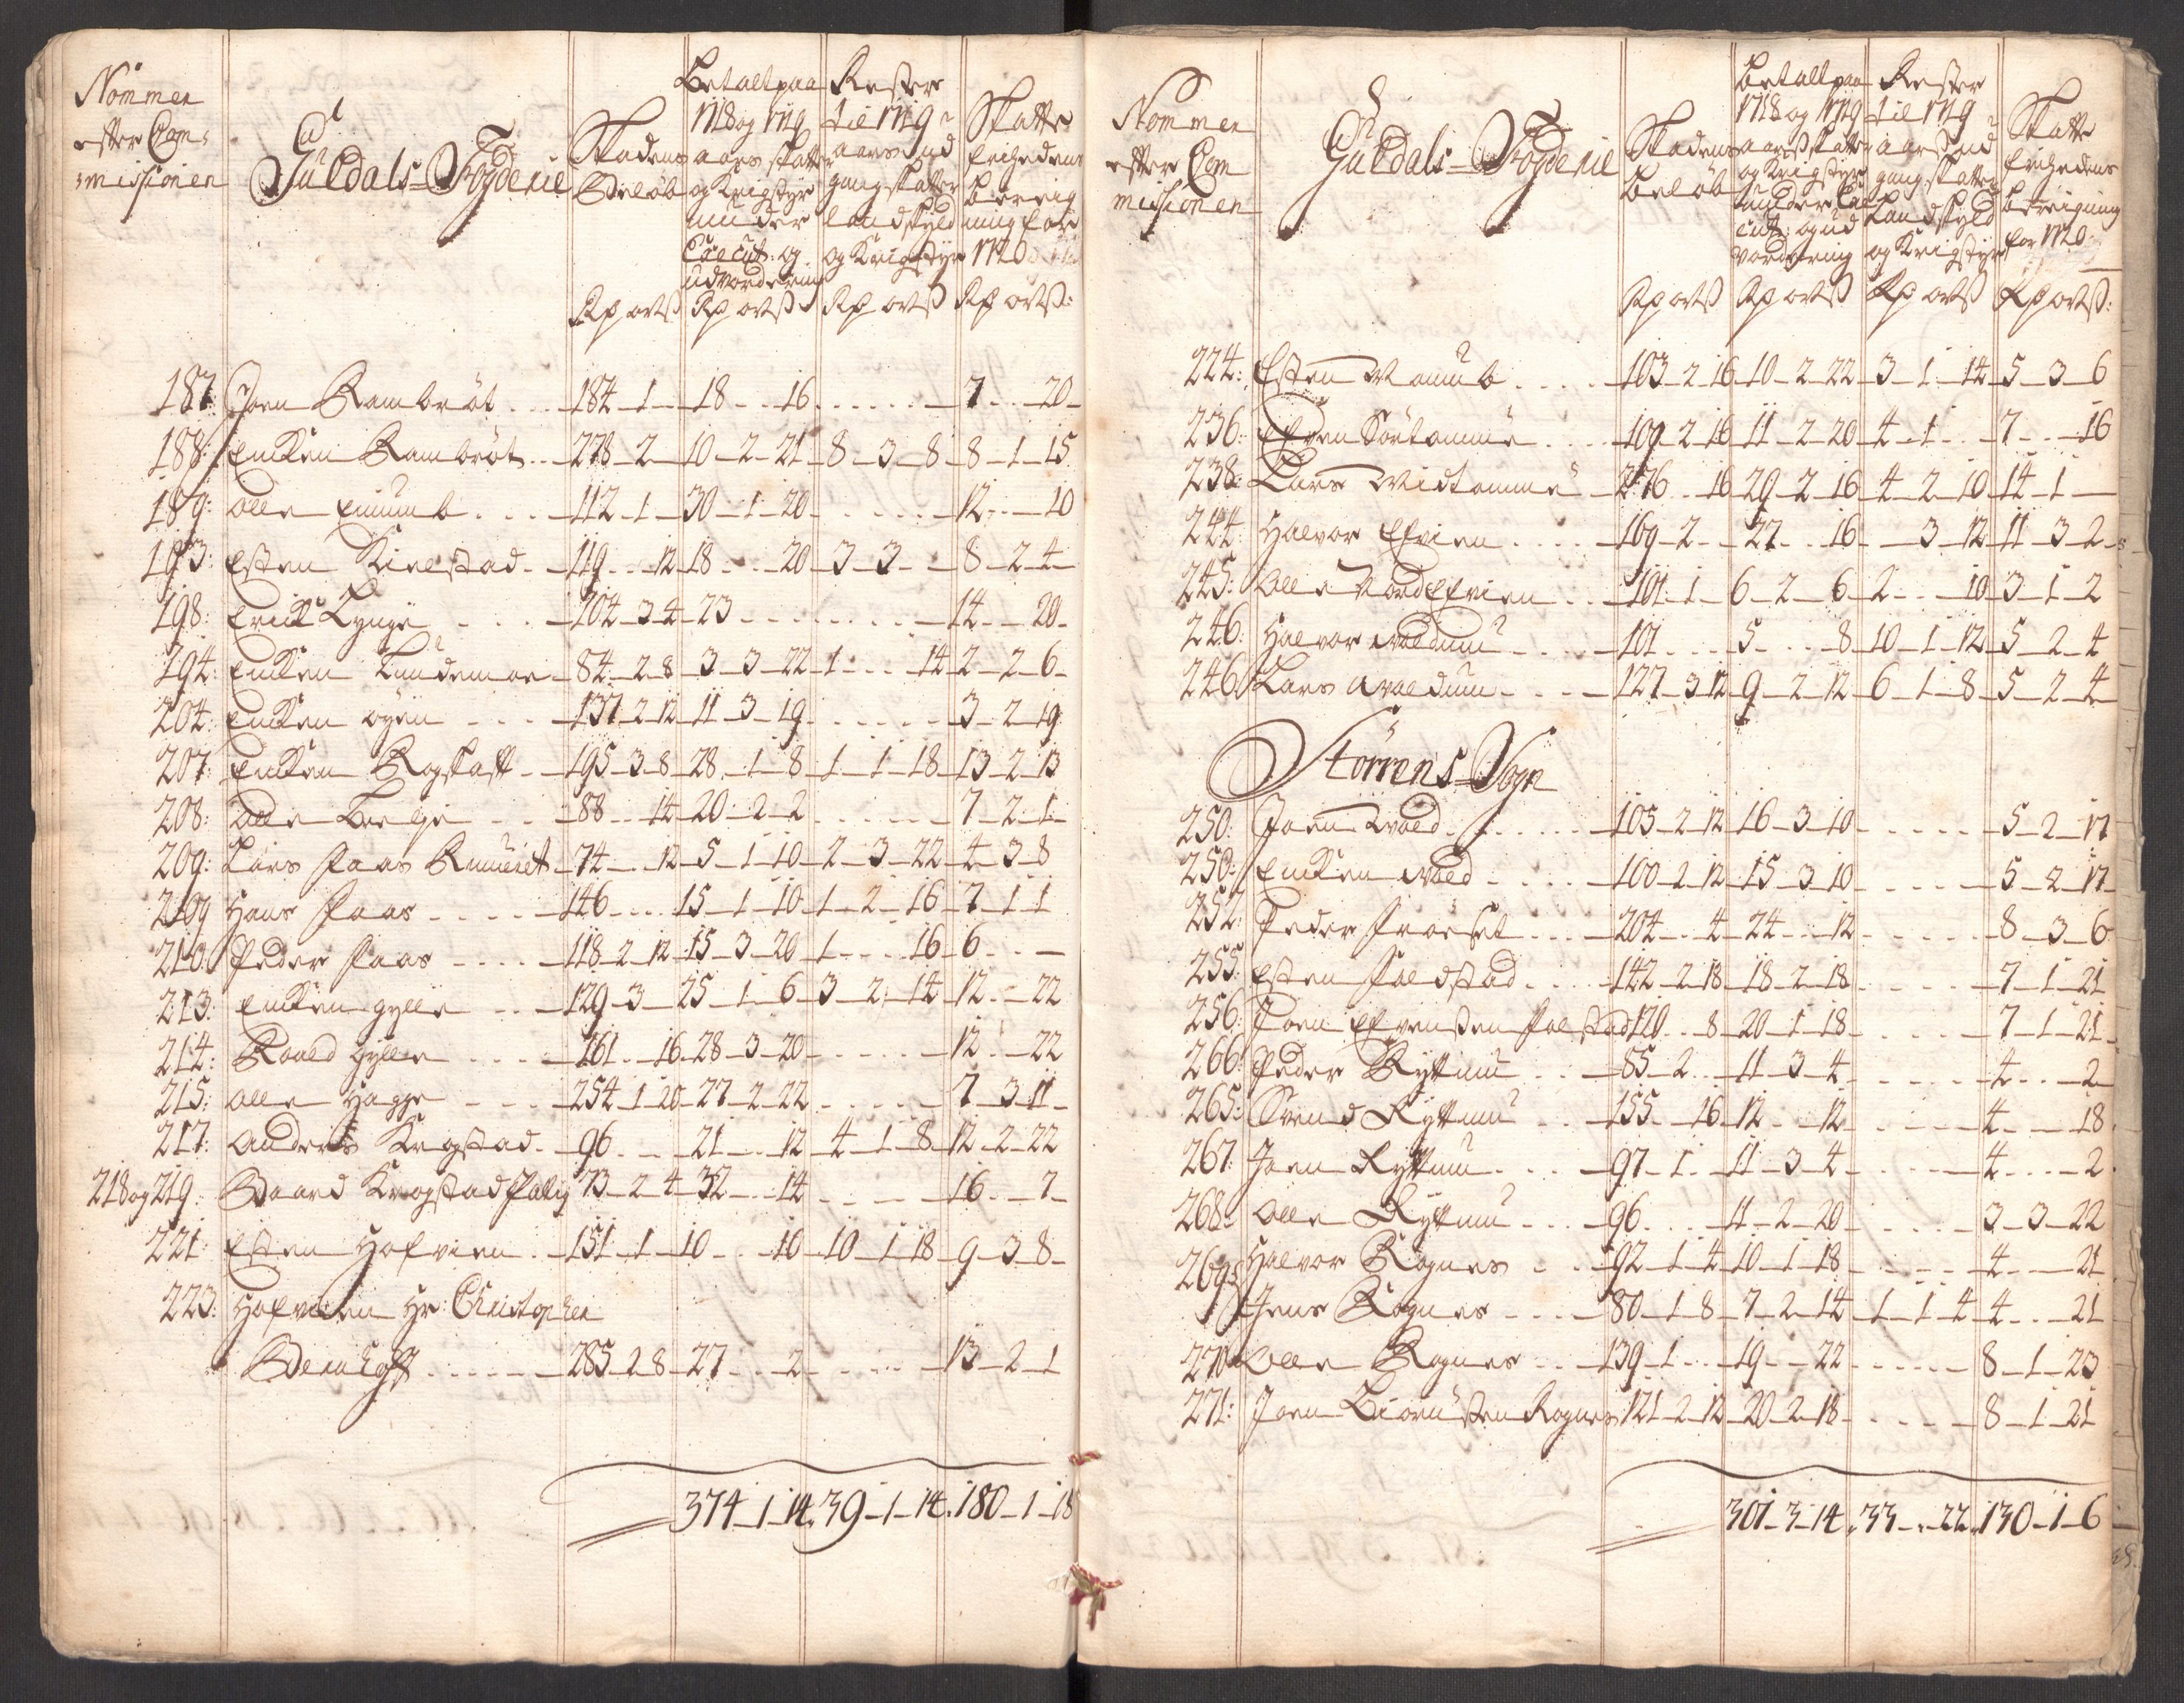 Nommer
efter Com-
missionen
Guldals Fogderie
Skadens
Beløb
Betalt paa
1718 og 1719
aars skatter
og Krigstyr
under
Execut: og
udvordering
Rester
til 1719
aars ud
gang skatter
landskyld
og Krigstyr
Skatte
frihedens
bereig
ning for
1720
Rd ort ß Rd ort ß Rd ort ß Rd ort ß
187: Joen Rambrøt 184-1- 18-16 7-20
188: Encken Rambrøt 278-2 10-2-21 8-3-8 8-1-15
189: Olle 112-1 30-1-20 12-10
193: Esten Kielstad 119-12 18-20 3-3 8-2-4
198: Erick Lynge 104-3-4 23 14-20
194: Encken Lundemoe 84-2-8 3-3-22 1-14 2-2-6
204: Encken øyen 137-2-12 11-3-19 3-2-19
207: Encken Rogstatt 195-3-8 28-1-8 1-1-18 13-2-13
208: Olle 88-14 20-2-2 7-2-1
209: Lars Faas 74-12 5-1-10 2-3-22 4-3-8
209 Hans Faas 146 15-1-10 1-2-16 7-1-1
210: Peder Faas 118-2-12 15-3-20 1-16 6
213: Encken gylle 129-3 25-1-6 3-2-14 12-22
214: Roald gylle 161-16 28-3-20 12-22
215: Olle Hagge 254-1-20 27-2-22 7-3-11
217: Anders Krogstad 96 21-12 4-1-8 12-2-22
218 og 219: Baard Krogstad 73-2-4 32-14 16-7
221: Esten Hofvien 151-1 10-10 10-1-18 9-3-8
223: Hofvien Hr: Christopher
285-2-8 27-2 13-2-1
374-1-14. 39-1-14. 180-1-18
Nommer
efter Com
missionen
Guldals Fogderie
Skadens
beløb
Betalt paa
1718 og 1719
aars skatter
og Krigstyr
under Exe
cut: og ud
vordering
Rester
til 1719
aars ud
gang skatter
Landskyld
og Krigstyr
Skatte
frihedens
bereigning
for 1720
Rd ort ß Rd ort ß Rd ort ß Rd ort ß:
224: Esten 103-2-16 10-2-22 3-1-14 5-3-6
236: Efven Sørtømme 109-2-16 11-2-20 4-1 7-16
238: Lars Midtømme 276-16 29-2-16 4-2-10 14-1
244: Halvor Efvien 169-2 27-16 3-12 11-3-2
245: Olle Nordefvien 101-1 6-2-6 2-10 3-1-2
246: Halvor Waldum 101 5-8 10-1-12 5-2-4
246 Lars Waldum 127-3-12 9-2-12 6-1-8 5-2-4
Størrens Sogn
250: Joen Wold 103-2-12 16-3-10 5-2-17
250: Encken Wold 100-2-12 15-3-10 5-2-17
252: Peder Froeset 204-4 24-12 8-3-6
255: Esten Foldstad 142-2-18 18-2-18 7-1-21
256: Joen Efvensen Folstad 120-8 20-1-18 7-1-21
266: Peder Ryttum 85-2 11-3-4 4-2
265: Svend Ryttum 155-16 12-12 4-18
267: Joen Ryttum 97-1 11-3-4 4-2
268: Olle Ryttum 96 11-2-20 3-3-22
269: Halvor Rognes 92-1-4 10-1-18 4-21
Jens Rognes 80-1-8 7-2-14 1-1-4 4-21
270 Olle Rognes 139-1 19-22 8-1-23
271: Joen Biørnsten Rognes 121-2-12 20-2-18 8-1-21
301-3-14. 33-22. 130-1-6